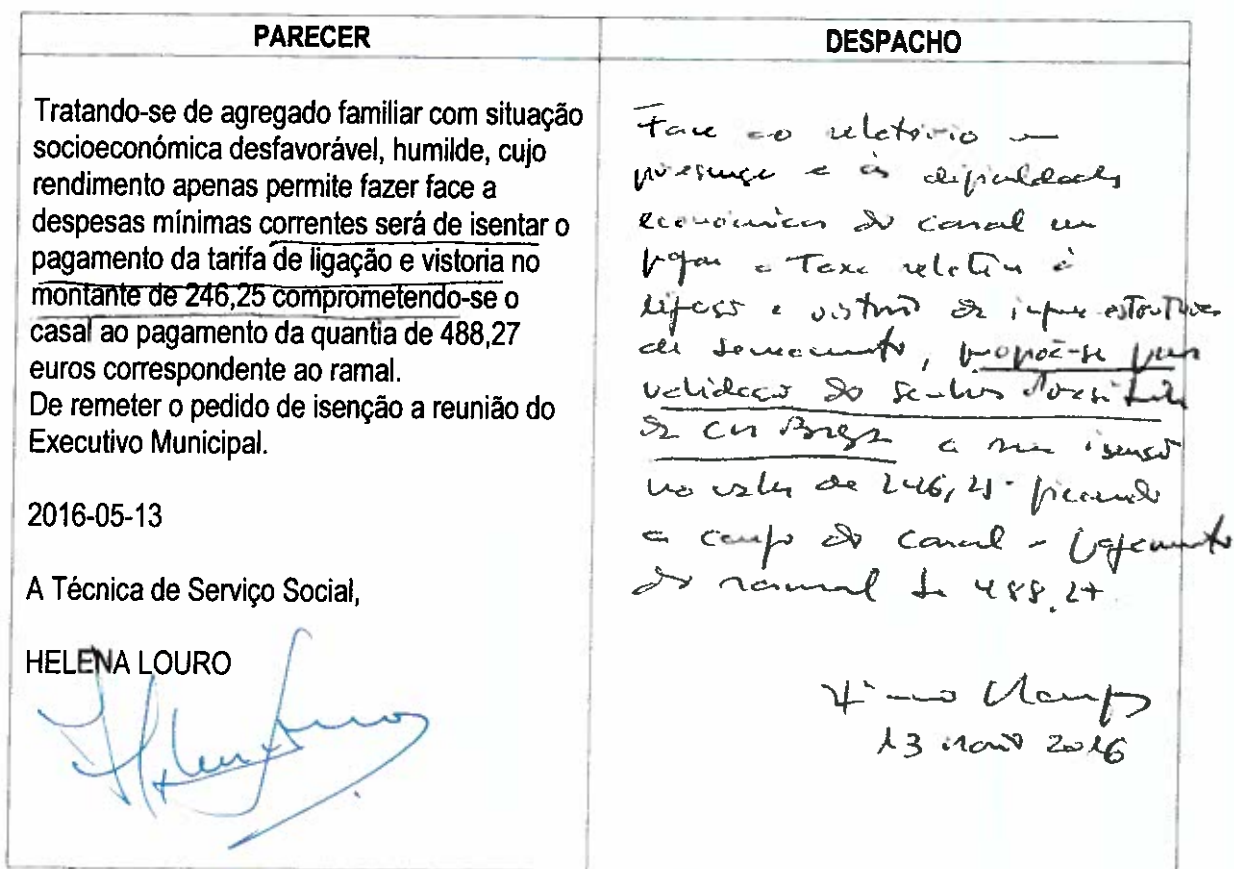 PARECER
Tratando-se de agregado familiar com situação
socioeconómica desfavorável, humilde, cujo
rendimento apenas permite fazer face a
despesas mínimas correntes será de isentar o
pagamento da tarifa de ligação e vistoria no
montante de 246,25 comprometendo-se o
casal ao pagamento da quantia de 488,27
euros correspondente ao ramal.
De remeter o pedido de isenção a reunião do
Executivo Municipal.
2016-05-13
A Técnica de Serviço Social,
HELENA LOURO
DESPACHO
Face ao relatório em
presença e às dificuldades
económicas do casal em
pagar a Taxa relativa à
ligação e vistoria de infraestruturas
de saneamento, propõe-se para
validação do Senhor Presidente
da CM Braga a sua isenção
no valor de 246,25 ficando
a cargo do casal o pagamento
do ramal de 488,27
13 maio 2016